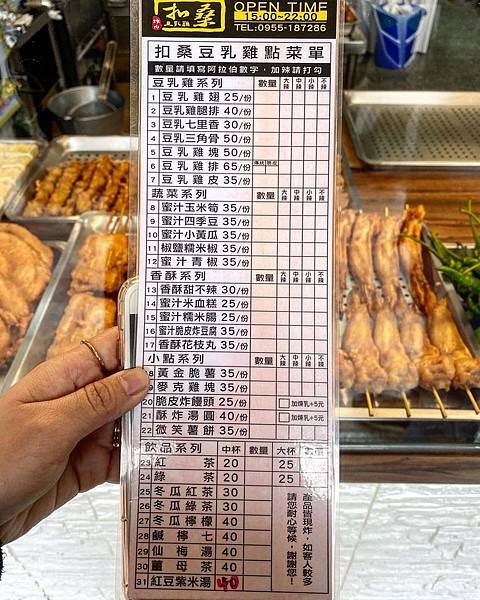 扣桑
豆乳雞
OPEN TIME
15:00-22:00
TEL:0955-187286
扣桑豆乳雞點菜單
數量請填寫阿拉伯數字，加辣請打勾
豆乳雞系列 數量 大辣 中辣 小辣 不辣
1 豆乳雞翅 25/份
2 豆乳雞腿排 40/份
3 豆乳七里香 30/份
4 豆乳三角骨 50/份
5 豆乳雞塊 50/份
6 豆乳雞排 65/份
7 豆乳雞皮 35/份
蔬菜系列 數量 大辣 中辣 小辣 不辣
8 蜜汁玉米筍 35/份
9 蜜汁四季豆 35/份
10 蜜汁小黃瓜 35/份
11 椒鹽糯米椒 35/份
12 蜜汁青椒 35/份
香酥系列 數量 大辣 中辣 小辣 不辣
13 香酥甜不辣 30/份
14 蜜汁米血糕 25/份
15 蜜汁糯米腸 25/份
16 蜜汁脆皮炸豆腐 35/份
17 香酥花枝丸 35/份
小點系列 數量 大辣 中辣 小辣 不辣
18 黃金脆薯 35/份
19 麥克雞塊 35/份
20 脆皮炸饅頭 25/份 加煉乳+5元
21 酥炸湯圓 40/份 加煉乳+5元
22 微笑薯餅 35/份
飲品系列 中杯 數量 大杯 數量
23 紅茶 20 25
24 綠茶 20 25
25 冬瓜紅茶 30
26 冬瓜綠茶 30
27 冬瓜檸檬 40
28 鹹檸七 40
29 仙梅湯 40
30 薑母茶 40
31 紅豆紫米湯 40
產品皆現炸，如客人較多
請您耐心等候，謝謝您！